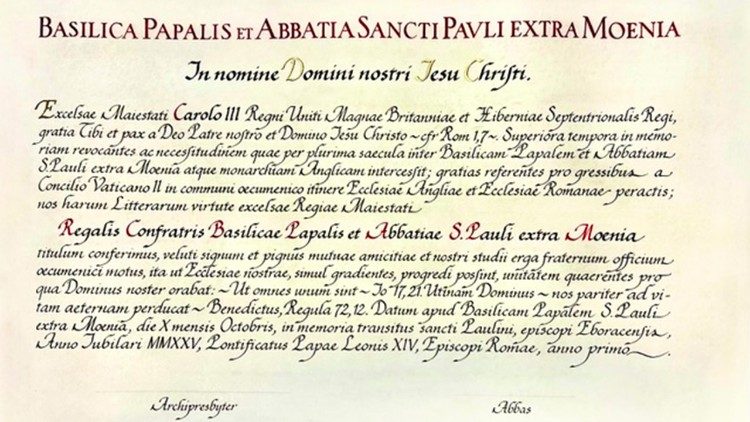 BASILICA PAPALIS ET ABBATIA SANCTI PAVLI EXTRA MOENIA
In nomine Domini nostri Iesu Christi.
Excelsae Maiestati Carolo III Regni Uniti Magnae Britanniae et Hiberniae Septentrionalis Regi,
gratia Tibi et pax a Deo Patre nostro et Domino Iesu Christo ~cfr Rom 1,7~. Superiora tempora in memo-
riam revocantes ac necessitudinem quae per plurima saecula inter Basilicam Papalem et Abbatiam
S.Pauli extra Moenia atque monarchiam Anglicam intercessit; gratias referentes pro gressibus a
Concilio Vaticano II in communi oecumenico itinere Ecclesiae Angliae et Ecclesiae Romanae peractis;
nos harum Litterarum virtute excelsae Regiae Maiestati
Regalis Confratris Basilicae Papalis et Abbatiae S.Pauli extra Moenia
titulum conferimus, veluti signum et pignus mutuae amicitiae et nostri studii erga fraternum officium
oecumenici motus, ita ut Ecclesiae nostrae, simul gradientes, progredi possint, unitatem quaerentes pro
qua Dominus noster orabat: ~Ut omnes unum sint~ Io 17,21. Utinam Dominus ~nos pariter ad vi-
tam aeternam perducat~ Benedictus, Regula 72,12. Datum apud Basilicam Papalem S.Pauli
extra Moenia, die X mensis Octobris, in memoria transitus sancti Paulini, episcopi Eboracensis,
Anno Iubilari MMXXV, Pontificatus Papae Leonis XIV, Episcopi Romae, anno primo.
Archipresbyter
Abbas